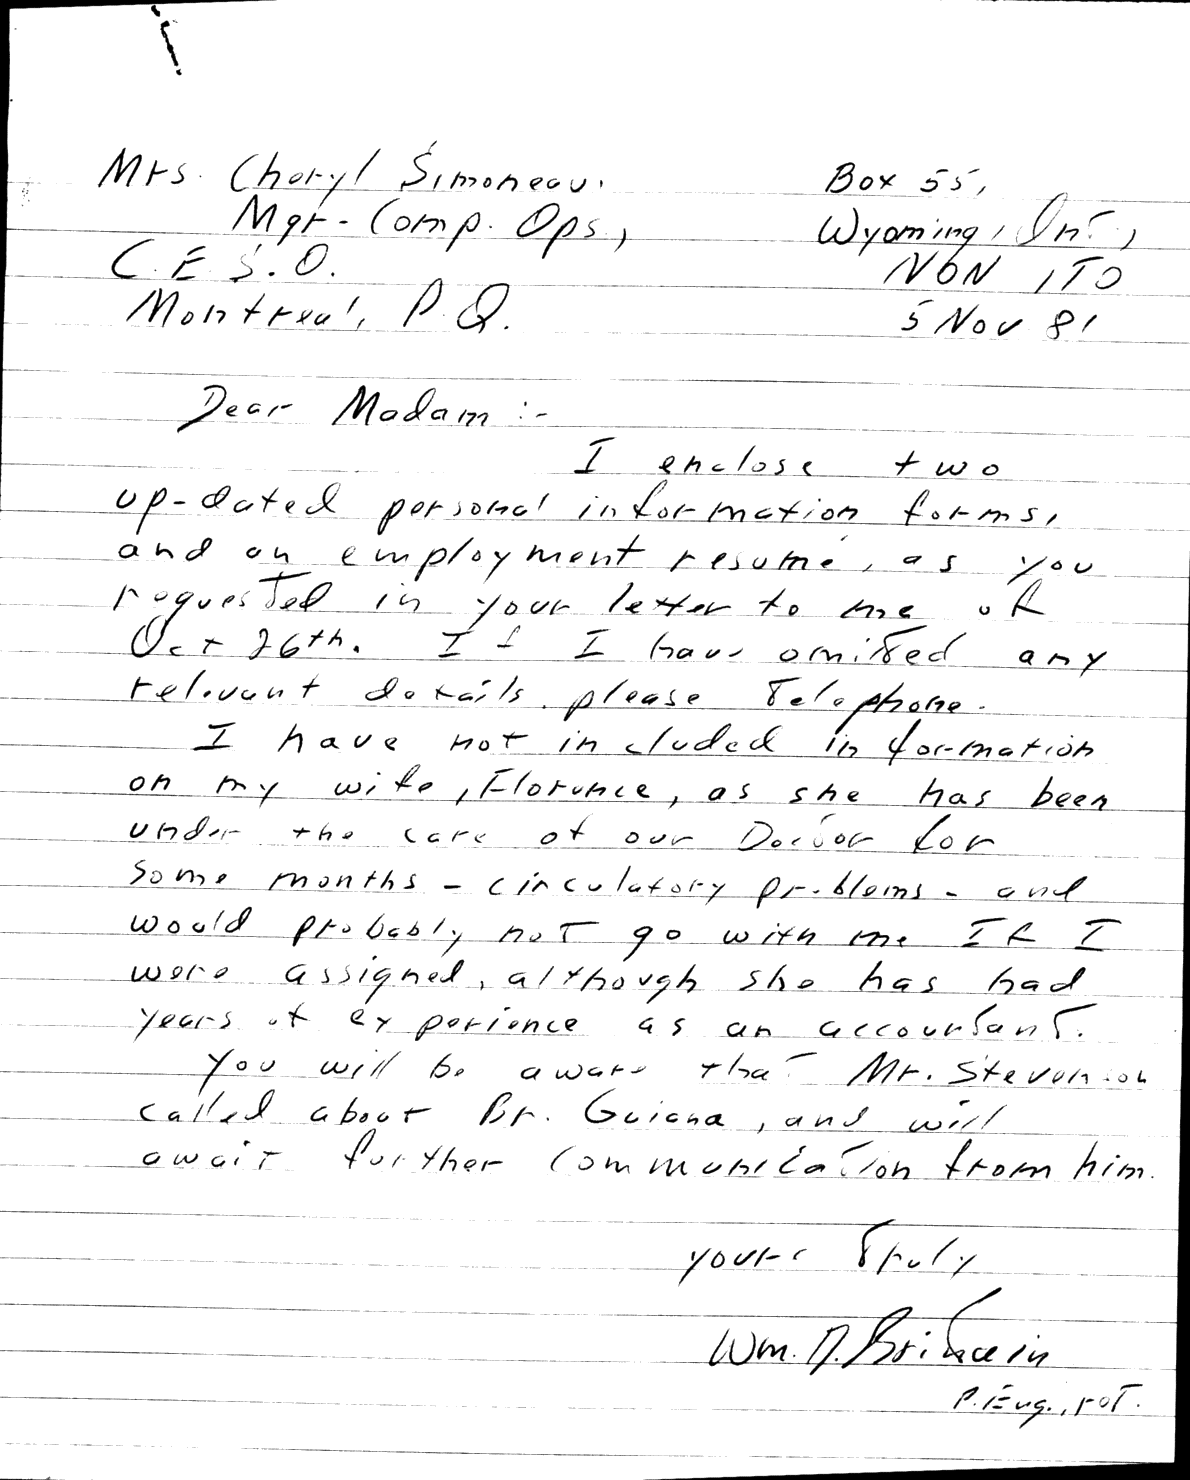 Mrs. Cheryl Simoneau,
Mgr - Comp. Ops.,
C.E.S.O.
Montreal, P.Q.
Box 55,
Wyoming, Ont.,
N0N 1T0
5 Nov 81
Dear Madam :-
I enclose two
up-dated personal information forms,
and an employment resumé, as you
requested in your letter to me of
Oct 26th. If I have omitted any
relevant details, please telephone.
I have not included information
on my wife, Florence, as she has been
under the care of our Doctor for
some months - circulatory problems - and
would probably not go with me If I
were assigned, although she has had
years of experience as an accountant.
You will be aware that Mr. Stevenson
called about Br. Guiana, and will
await further communication from him.
yours truly
Wm. Brittain
P. Eng., ret.